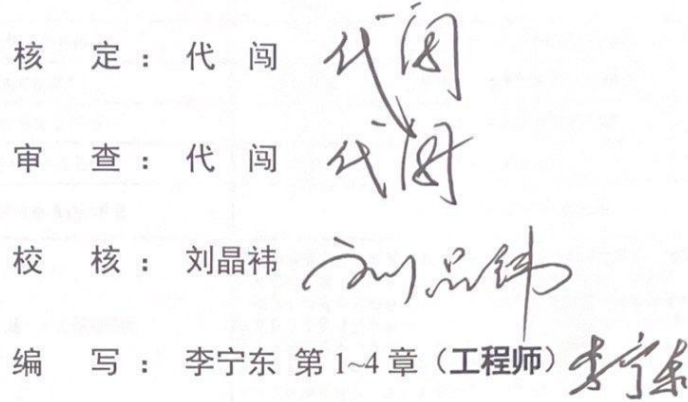 核 定： 代 闯 代闯
审 查： 代 闯 代闯
校 核： 刘晶祎 刘晶祎
编 写： 李宁东 第1~4章（工程师） 李宁东